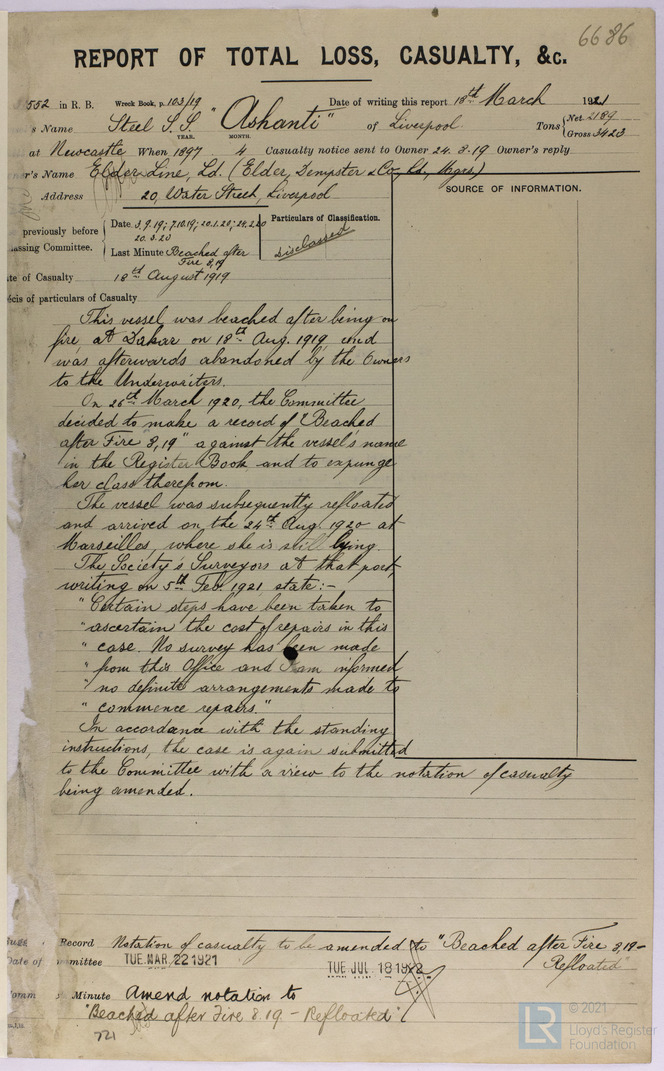 6686
REPORT OF TOTAL LOSS, CASUALTY, &c.
552 in R. B. Wreck Book, p. 103/19 Date of writing this report 18th March 1921
s Name Steel S.S. "Ashanti" of Liverpool Tons { Net 2189 Gross 3423
YEAR. MONTH.
at Newcastle When 1897 4 Casualty notice sent to Owner 24.8.19 Owner's reply
er's Name Elder Line, Ld. (Elder, Dempster & Co, Ld., Mgrs,)
Address 20, Water Street, Liverpool
SOURCE OF INFORMATION.
previously before
assing Committee.
Date 3.9.19; 7.10.19; 20.1.20; 24.2.20
20.3.20
Last Minute Beached after
Fire 8,19
Particulars of Classification.
Disclassed
te of Casualty 18th August 1919
écis of particulars of Casualty
This vessel was beached after being on
fire at Dakar on 18th Aug. 1919 and
was afterwards abandoned by the Owners
to the Underwriters.
On 26th March 1920, the Committee
decided to make a record of "Beached
after Fire 8,19" against the vessel's name
in the Register Book and to expunge
her class therefrom.
The vessel was subsequently refloated
and arrived on the 24th Aug. 1920 at
Marseilles, where she is still lying.
The Society's Surveyors at that port,
writing on 5th Feb. 1921 state:-
"Certain steps have been taken to
"ascertain the cost of repairs in this
"case. No survey has been made
"from this Office and I am informed
"no definite arrangements made to
"commence repairs."
In accordance with the standing
instructions, the case is again submitted
to the Committee with a view to the notation of casualty
being amended.
Record Notation of casualty to be amended to "Beached after Fire 8,19 -
Refloated"
Date of mmittee TUE. MAR. 22 1921 TUE. JUL. 18 1922
Minute Amend notation to
"Beached after Fire 8 19 - Refloated"
721
LR
© 2021
Lloyd's Register
Foundation